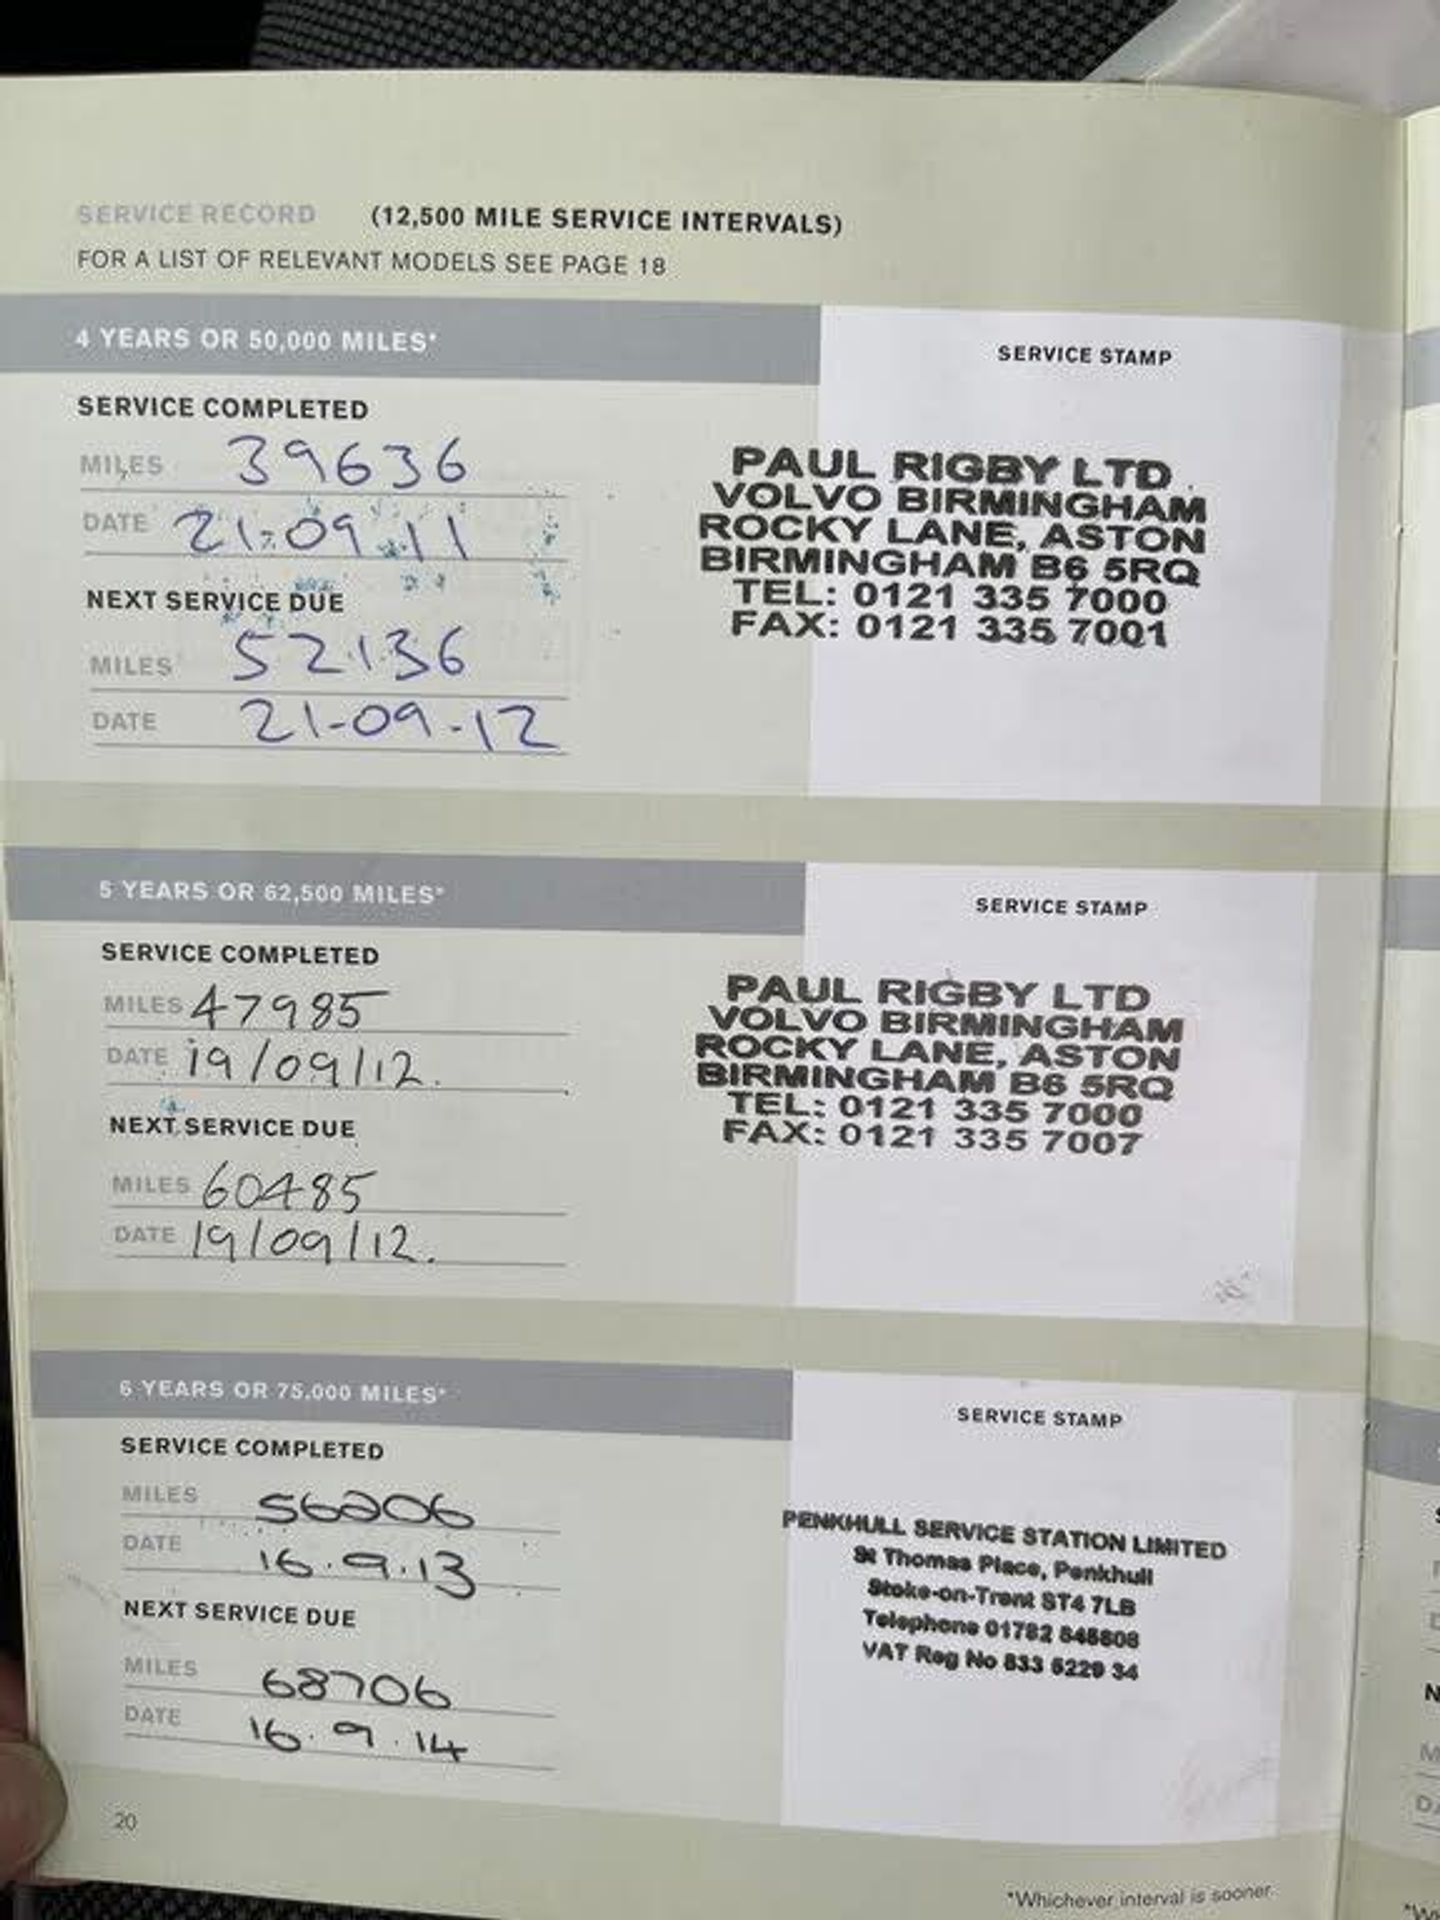 SERVICE RECORD (12,500 MILE SERVICE INTERVALS)
FOR A LIST OF RELEVANT MODELS SEE PAGE 18
4 YEARS OR 50,000 MILES*
SERVICE STAMP
SERVICE COMPLETED
MILES 39636
DATE 21-09-11
NEXT SERVICE DUE
MILES 52136
DATE 21-09-12
PAUL RIGBY LTD
VOLVO BIRMINGHAM
ROCKY LANE, ASTON
BIRMINGHAM B6 5RQ
TEL: 0121 335 7000
FAX: 0121 335 7001
5 YEARS OR 62,500 MILES*
SERVICE STAMP
SERVICE COMPLETED
MILES 47985
DATE 19/09/12.
NEXT SERVICE DUE
MILES 60485
DATE 19/09/12.
PAUL RIGBY LTD
VOLVO BIRMINGHAM
ROCKY LANE, ASTON
BIRMINGHAM B6 5RQ
TEL: 0121 335 7000
FAX: 0121 335 7007
6 YEARS OR 75,000 MILES*
SERVICE STAMP
SERVICE COMPLETED
MILES 56206
DATE 16.9.13
NEXT SERVICE DUE
MILES 68706
DATE 16.9.14
PENKHULL SERVICE STATION LIMITED
St Thomas Place, Penkhull
Stoke-on-Trent ST4 7LB
Telephone 01782
VAT Reg No 833 5229 34
20
*Whichever interval is sooner